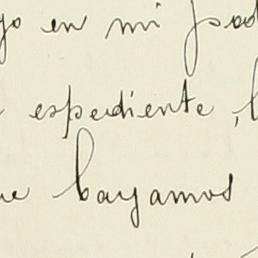 go en mi pod
espediente, l
ue bayamos